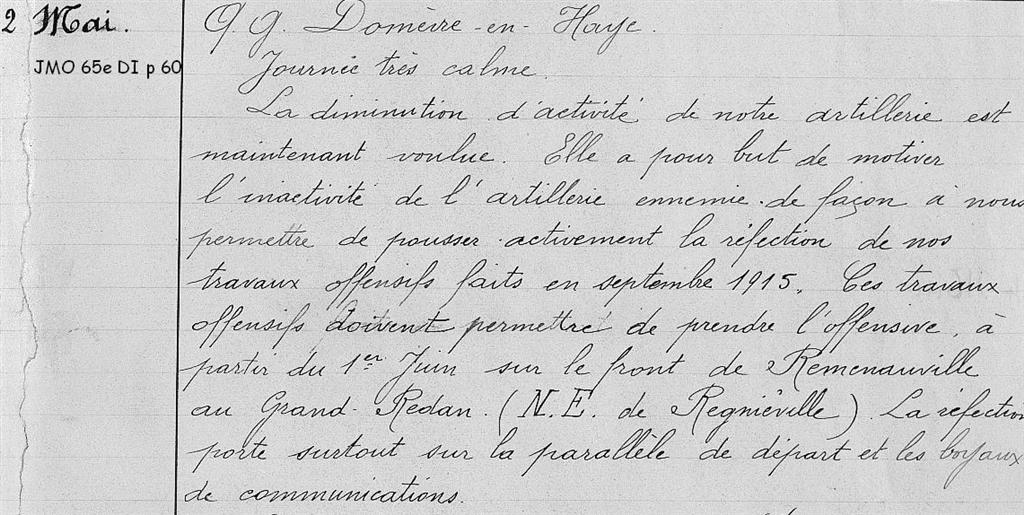 2 Mai. Q. G. Domèvre-en-Haye.
JMO 65e DI p 60 Journée très calme.
La diminution d'activité de notre artillerie est
maintenant voulue. Elle a pour but de motiver
l'inactivité de l'artillerie ennemie de façon à nous
permettre de pousser activement la réfection de nos
travaux offensifs faits en septembre 1915. Ces travaux
offensifs doivent permettre de prendre l'offensive, à
partir du 1er Juin sur le front de Remenauville
au Grand-Redan. (N.E. de Regniéville). La réfection
porte surtout sur la parallèle de départ et les boyaux
de communications.